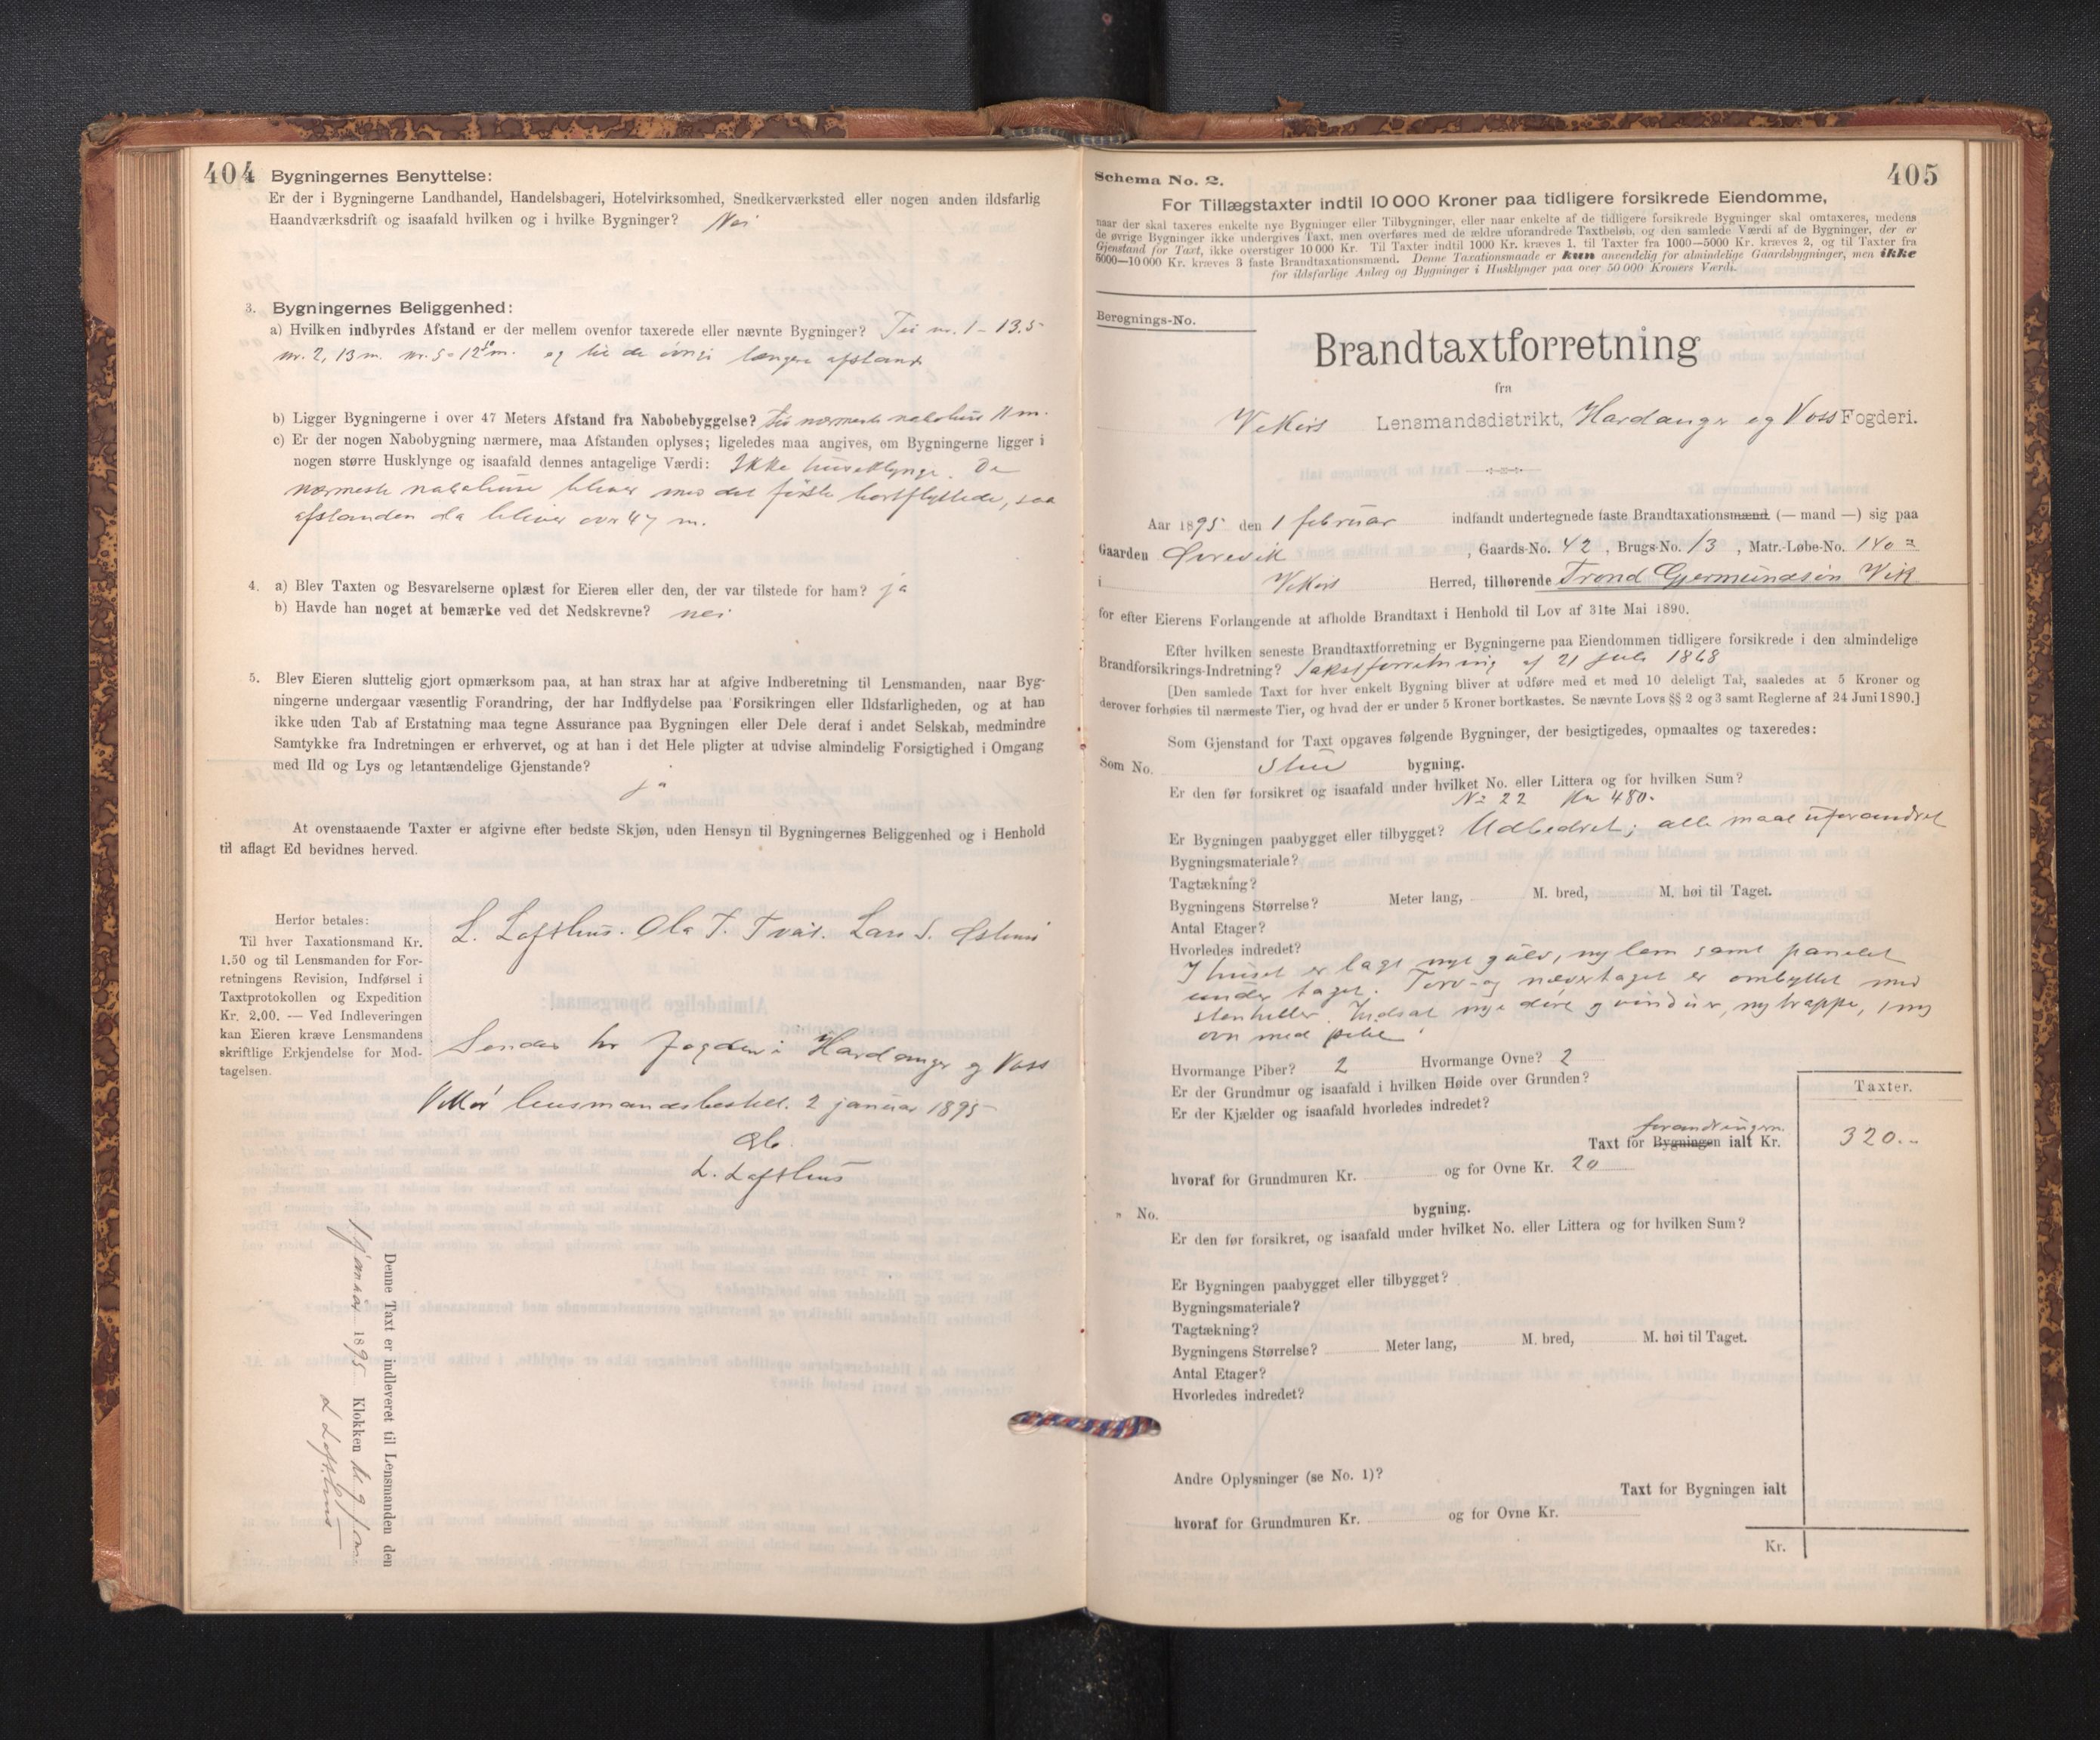 404
Bygningernes Benyttelse:
Er der i Bygningerne Landhandel, Handelsbageri, Hotelvirksomhed, Snedkerværksted eller nogen anden ildsfarlig
Haandværksdrift og isaafald hvilken og i hvilke Bygninger? Nei
3. Bygningernes Beliggenhed:
a) Hvilken indbyrdes Afstand er der mellem ovenfor taxerede eller nævnte Bygninger? Til nr. 1 - 13.5
nr. 2, 13 m. nr. 5 = 12 m. og til de øvrige længere afstand
b) Ligger Bygningerne i over 47 Meters Afstand fra Nabobebyggelse? til nærmeste nabohus 11 m.
c) Er der nogen Nabobygning nærmere, maa Afstanden oplyses; ligeledes maa angives, om Bygningerne ligger i
nogen større Husklynge og isaafald dennes antagelige Værdi: Ikke husklynge. De
nærmeste nabohuse bliver med det første bortflyttede, saa
afstanden da bliver over 47 m.
4. a) Blev Taxten og Besvarelserne oplæst for Eieren eller den, der var tilstede for ham? ja
b) Havde han noget at bemærke ved det Nedskrevne? nei
5. Blev Eieren sluttelig gjort opmærksom paa, at han strax har at afgive Indberetning til Lensmanden, naar Byg-
ningerne undergaar væsentlig Forandring, der har Indflydelse paa Forsikringen eller Ildsfarligheden, og at han
ikke uden Tab af Erstatning maa tegne Assurance paa Bygningen eller Dele deraf i andet Selskab, medmindre
Samtykke fra Indretningen er erhvervet, og at han i det Hele pligter at udvise almindelig Forsigtighed i Omgang
med Ild og Lys og letantændelige Gjenstande?
ja
At ovenstaaende Taxter er afgivne efter bedste Skjøn, uden Hensyn til Bygningernes Beliggenhed og i Henhold
til aflagt Ed bevidnes herved.
Herfor betales:
Til hver Taxationsmand Kr.
1.50 og til Lensmanden for For-
retningens Revision, Indførsel i
Taxtprotokollen og Expedition
Kr. 2.00. — Ved Indleveringen
kan Eieren kræve Lensmandens
skriftlige Erkjendelse for Mod-
tagelsen.
L. Lofthus. Ola T. Lars S.
Sendes hr Fogden i Hardanger og Voss
Vikør lensmandsbestill. 2 januar 1895
L. Lofthus
Denne Taxt er indleveret til Lensmanden den
1 januar 1895 Klokken
L Lofthus
405
Schema No. 2.
For Tillægstaxter indtil 10 000 Kroner paa tidligere forsikrede Eiendomme,
naar der skal taxeres enkelte nye Bygninger eller Tilbygninger, eller naar enkelte af de tidligere forsikrede Bygninger skal omtaxeres, medens
de øvrige Bygninger ikke undergives Taxt, men overføres med de ældre uforandrede Taxtbeløb, og den samlede Værdi af de Bygninger, der er
Gjenstand for Taxt, ikke overstiger 10 000 Kr. Til Taxter indtil 1000 Kr. kræves 1, til Taxter fra 1000—5000 Kr. kræves 2, og til Taxter fra
5000—10 000 Kr. kræves 3 faste Brandtaxationsmænd. Denne Taxationsmaade er kun anvendelig for almindelige Gaardsbygninger, men ikke
for ildsfarlige Anlæg og Bygninger i Husklynger paa over 50 000 Kroners Værdi.
Beregnings-No.
Brandtaxtforretning
fra
Vikørs Lensmandsdistrikt, Hardanger og Voss Fogderi.
Aar 1895 den 1 februar indfandt undertegnede faste Brandtaxationsmænd (— mand —) sig paa
Gaarden Norevik, Gaards-No. 42, Brugs-No. 13, Matr.-Løbe-No. 140 a
i Vikørs Herred, tilhørende Trond Gjermundsøn Vik
for efter Eierens Forlangende at afholde Brandtaxt i Henhold til Lov af 31te Mai 1890.
Efter hvilken seneste Brandtaxtforretning er Bygningerne paa Eiendommen tidligere forsikrede i den almindelige
Brandforsikrings-Indretning? Takstforretning af 21 juli 1868
[Den samlede Taxt for hver enkelt Bygning bliver at udføre med et med 10 deleligt Tal, saaledes at 5 Kroner og
derover forhøies til nærmeste Tier, og hvad der er under 5 Kroner bortkastes. Se nævnte Lovs §§ 2 og 3 samt Reglerne af 24 Juni 1890.]
Som Gjenstand for Taxt opgaves følgende Bygninger, der besigtigedes, opmaaltes og taxeredes:
Som No. Stue bygning.
Er den før forsikret og isaafald under hvilket No. eller Littera og for hvilken Sum?
No 22 Kr 480.
Er Bygningen paabygget eller tilbygget? Udbedret; alle maal uforandret
Bygningsmateriale?
Tagtækning?
Bygningens Størrelse? Meter lang, M. bred, M. høi til Taget.
Antal Etager?
Hvorledes indredet?
I huset er lagt nyt gulv, ny lem samt panelet
under taget. Torv- og nævertaget er ombyttet med
stenheller. Indsat nye døre og vinduer, ny trappe, 1 ny
ovn med pibe
Hvormange Piber? 2 Hvormange Ovne? 2
Er der Grundmur og isaafald i hvilken Høide over Grunden?
Er der Kjælder og isaafald hvorledes indredet?
Taxter.
forandringen
Taxt for Bygningen ialt Kr. 320.-
hvoraf for Grundmuren Kr. og for Ovne Kr. 20
" No. bygning.
Er den før forsikret, og isaafald under hvilket No. eller Littera og for hvilken Sum?
Er Bygningen paabygget eller tilbygget?
Bygningsmateriale?
Tagtækning?
Bygningens Størrelse? Meter lang, M. bred, M. høi til Taget.
Antal Etager?
Hvorledes indredet?
Andre Oplysninger (se No. 1)?
Taxt for Bygningen ialt
hvoraf for Grundmuren Kr. og for Ovne Kr.
Kr.